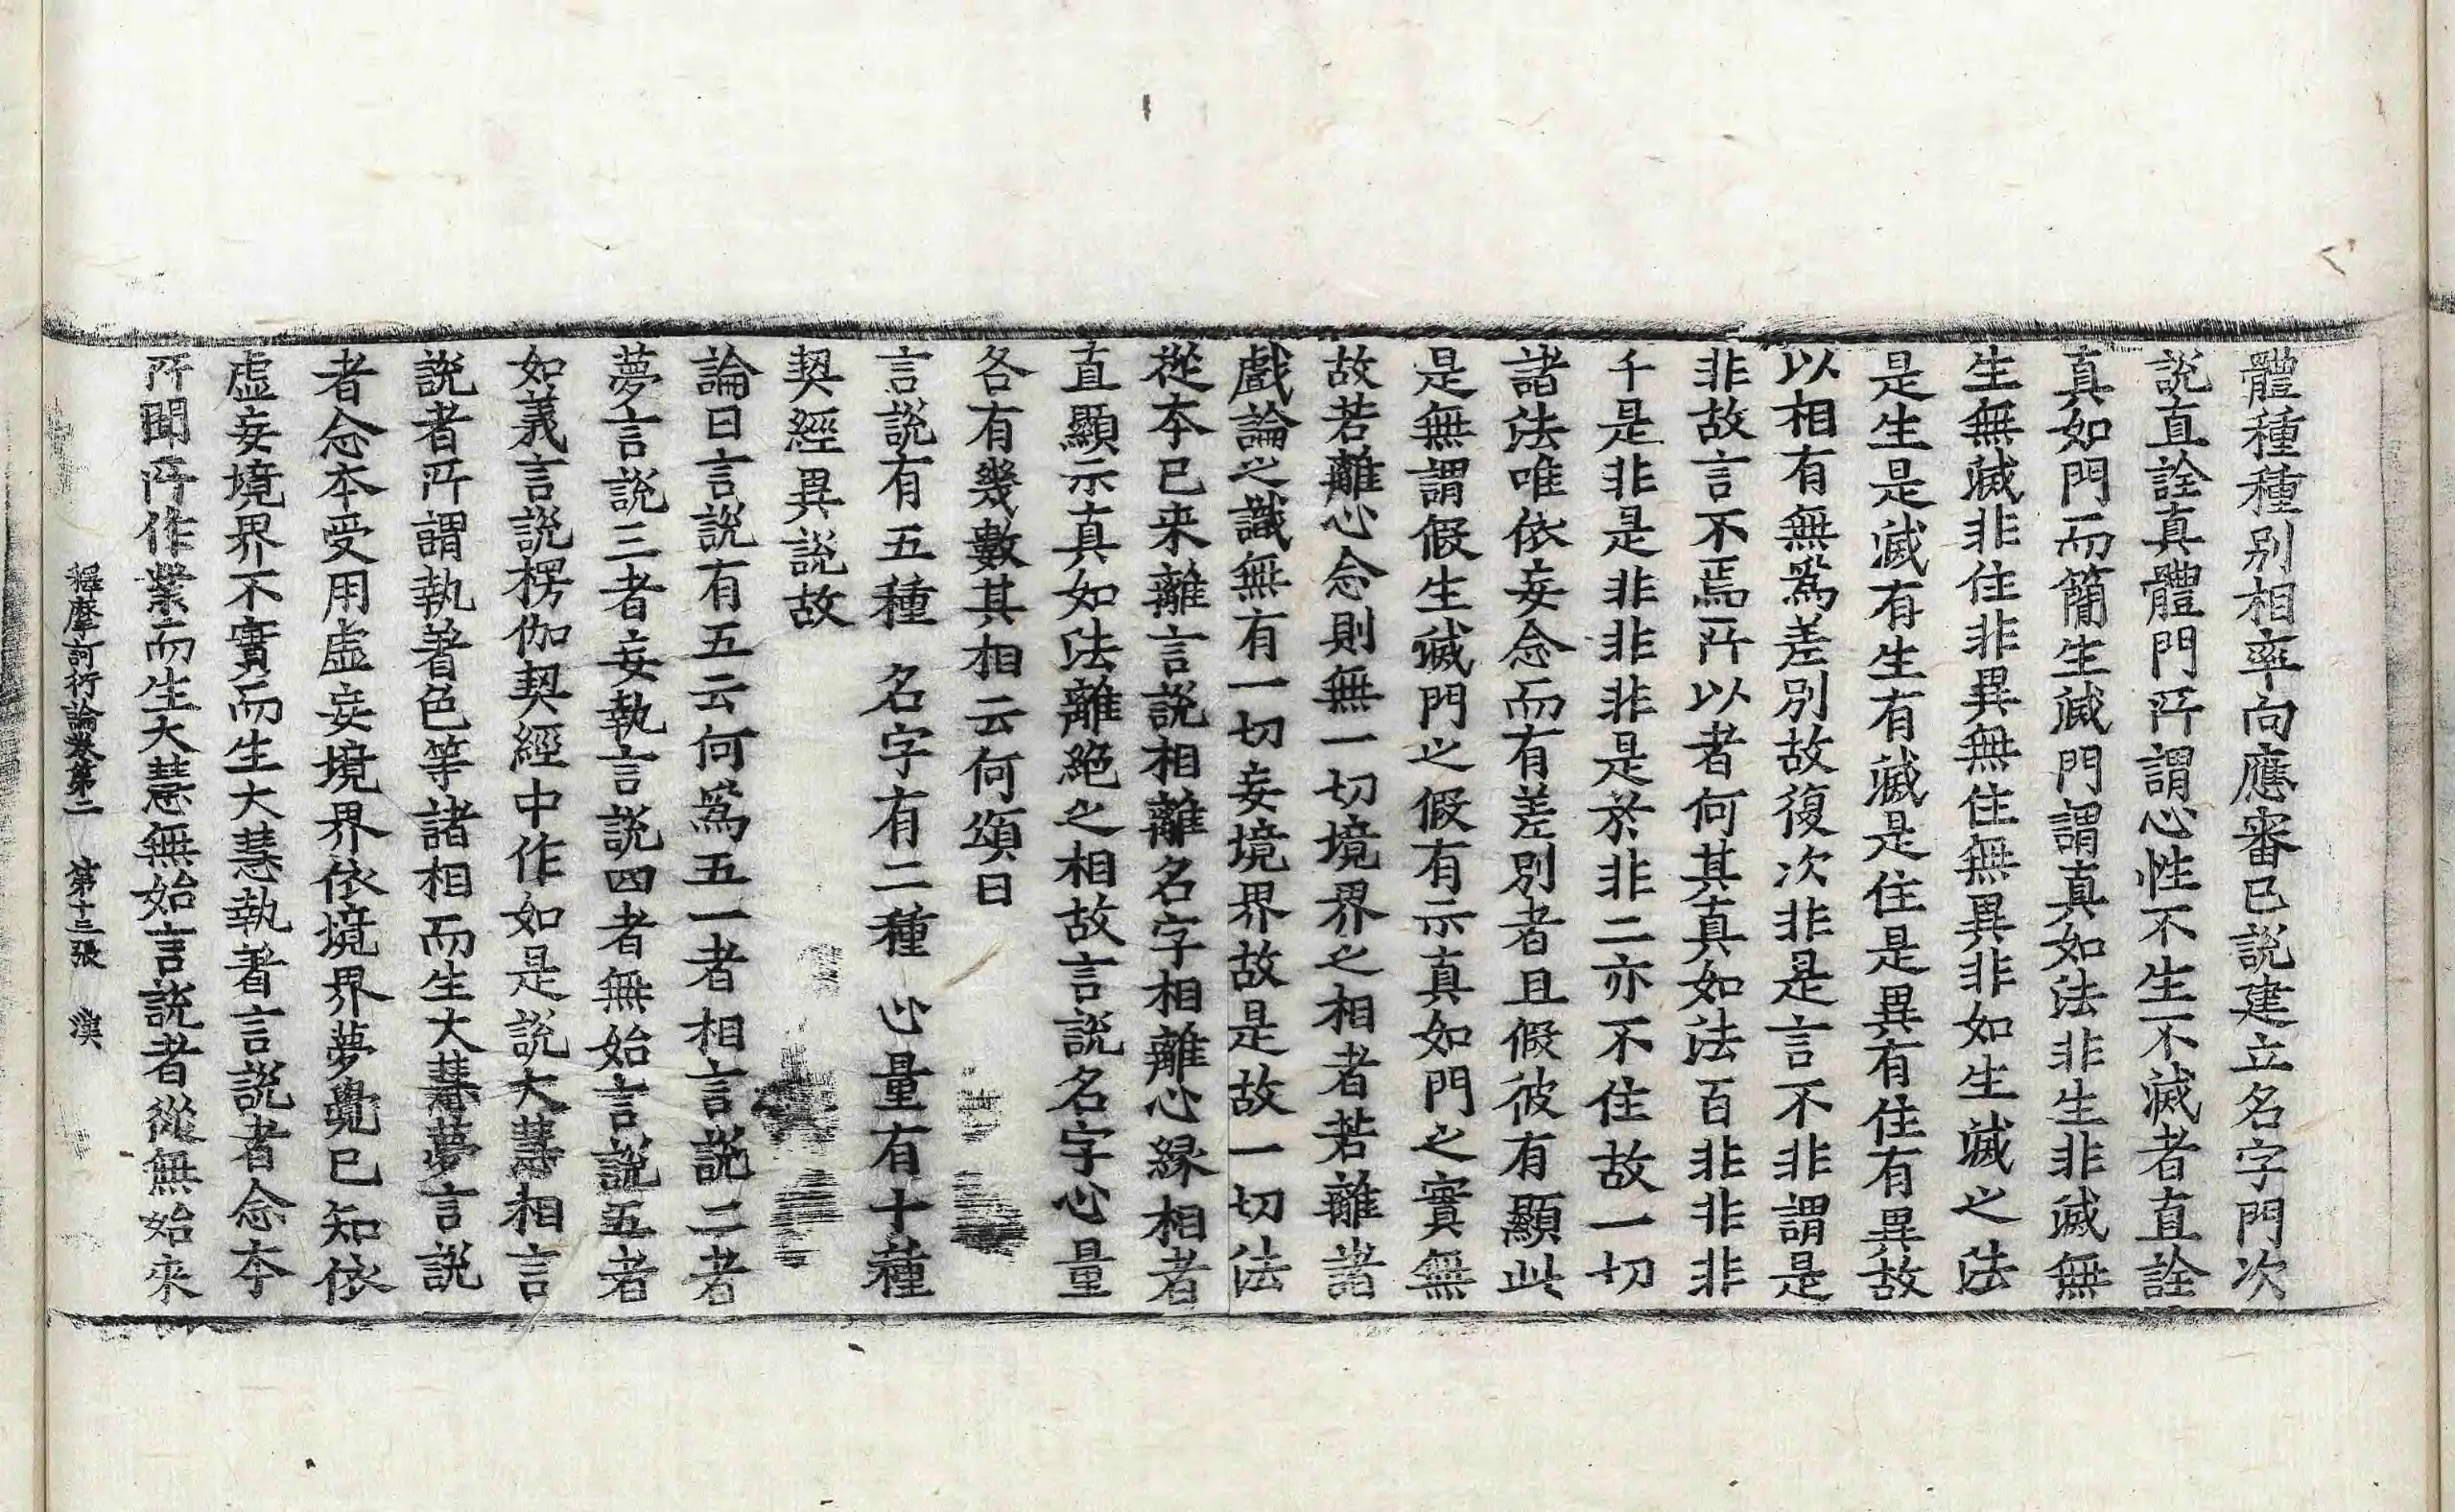 體種種別相率向應審已說建立名字門次
說直詮真體門所謂心性不生不滅者直詮
真如門而簡生滅門謂真如法非生非滅無
生無滅非住非異無住無異非如生滅之法
是生是滅有生有滅是住是異有住有異故
以相有無爲差別故復次非是言不非謂是
非故言不焉所以者何其真如法百非非非
千是非是非非非是於非二亦不住故一切
諸法唯依妄念而有差別者且假彼有顯此
是無謂假生滅門之假有示真如門之實無
故若離心念則無一切境界之相者若離諸
戲論之識無有一切妄境界故是故一切法
從本已来離言說相離名字相離心緣相者
直顯示真如法離絕之相故言說名字心量
各有幾數其相云何頌曰
言說有五種　名字有二種　心量有十種
契經異說故
論曰言說有五云何爲五一者相言說二者
夢言說三者妄執言說四者無始言說五者
如義言說楞伽契經中作如是說大慧相言
說者所謂執著色等諸相而生大慧夢言說
者念本受用虛妄境界依境界夢覺已知依
虛妄境界不實而生大慧執著言說者念本
所聞所作業而生大慧無始言說者從無始來
釋摩訶衍論卷第二　第十三張　漢